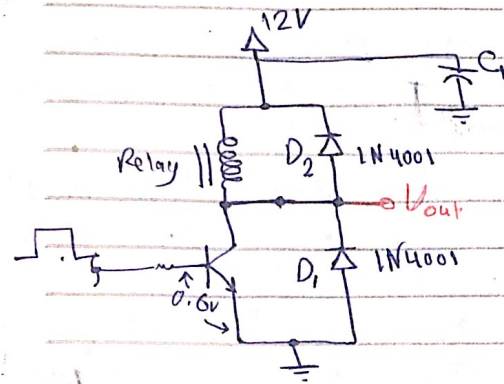 12V
C1
Relay
D2
1N4001
Vout
D1
1N4001
0.6v